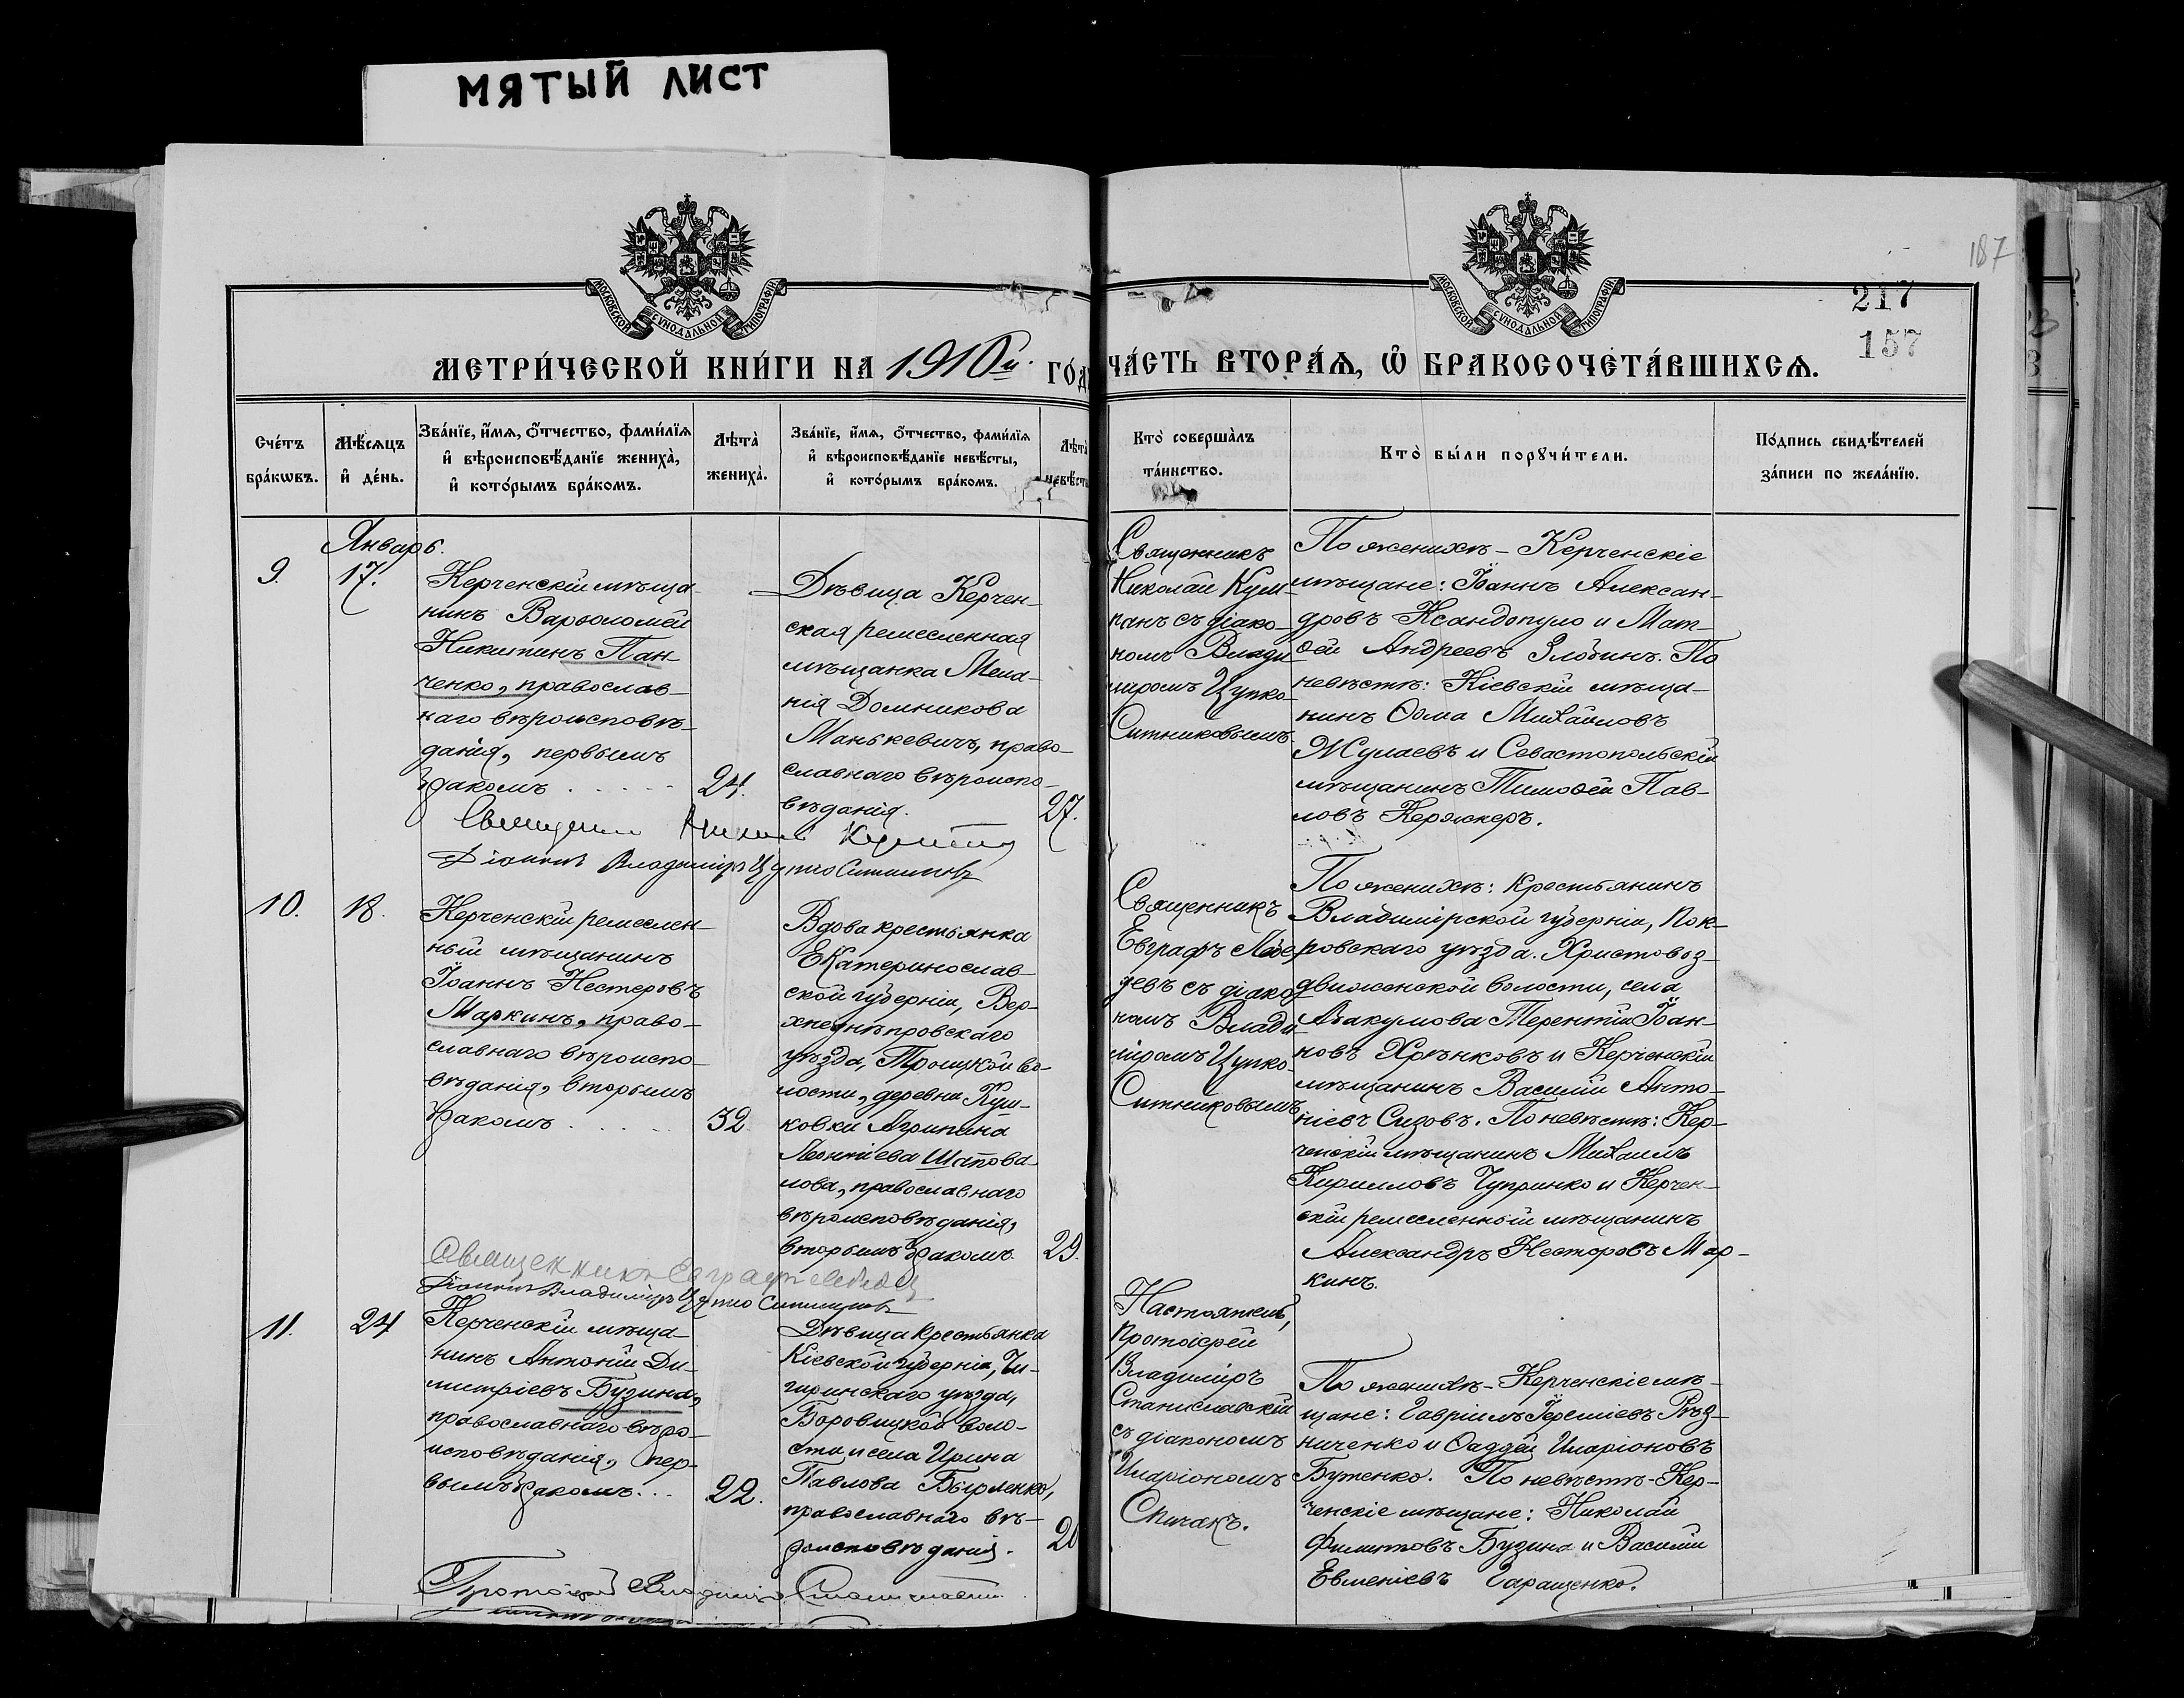 МЯТЫЙ ЛИСТ
187
217
157
МОСКОВСКОЙ СѴНОДАЛЬНОЙ ТИПОГРАФІИ
МОСКОВСКОЙ СѴНОДАЛЬНОЙ ТИПОГРАФІИ
МЕТРИ́ЧЕСКОЙ КНИ́ГИ НА 1910й ГО́Д
ЧА́СТЬ ВТОРА́Ѧ, Ѡ҆ БРАКОСОЧЕТА́ВШИХСѦ.
Сче́тъ бра́кѡвъ.
Мѣ́сѧцъ и҆ де́нь.
Зва́нїе, и҆́мѧ, ѻ҆́тчество, фами́лїѧ
и҆ вѣроисповѣ́данїе жениха̀,
и҆ кото́рымъ бра́комъ.
Лѣта̀ жениха̀.
Зва́нїе, и҆́мѧ, ѻ҆́тчество, фами́лїѧ
и҆ вѣроисповѣ́данїе невѣ́сты,
и҆ кото́рымъ бра́комъ.
Лѣта̀ невѣ́сты
Кто̀ соверша̀лъ
та́инство.
Кто̀ бы́ли порꙋчи́тели.
По́дпись свидѣ́телей
за́писи по жела́нїю.
Январь.
9.
17.
Керченскій мѣща-
нинъ Варѳоломей
Никитинъ Пан-
ченко, православ-
наго вѣроисповѣ-
данія, первымъ
бракомъ . . . . .
24.
Дѣвица Керчен-
ская ремесленная
мѣщанка Мела-
нія Домникова
Манькевичъ, право-
славнаго вѣроиспо-
вѣданія.
27.
Священникъ
Николай
панъ съ діако-
номъ Влади-
міромъ Цупко-
Ситниковымъ.
По женихѣ - Керченскіе
мѣщане: Іоаннъ Алексан-
дровъ Ксандопуло и Мат-
ѳей Андреевъ Злобинъ. По
невѣстѣ: Кіевскій мѣща-
нинъ Ѳома Михайловъ
Жулаевъ и Севастопольскій
мѣщанинъ Тимоѳей Пав-
ловъ
Священникъ
Діаконъ Владиміръ Цупко Ситниковъ
10.
18.
Керченскій ремеслен-
ный мѣщанинъ
Іоаннъ Нестеровъ
Маркинъ, право-
славнаго вѣроиспо-
вѣданія, вторымъ
бракомъ . . . . .
32
Вдова крестьянка
Екатеринослав-
ской губерніи, Вер-
хнеднѣпровскаго
уѣзда, Троицкой во-
лости, деревни
ковки Агрипина
Леонтіева Шапова-
лова, православнаго
вѣроисповѣданія,
вторымъ бракомъ.
29.
Священникъ
Евграфъ Лебе-
девъ съ діако-
номъ Влади-
міромъ Цупко-
Ситниковымъ
По женихѣ: крестьянинъ
Владимірской губерніи, Пок-
ровскаго уѣзда. Христовоз-
движенской волости, села
Авакумова Терентій Іоан-
новъ Хрѣнковъ и Керченскій
мѣщанинъ Василій Анто-
ніевъ Сизовъ. По невѣстѣ: Кер-
ченскій мѣщанинъ Михаилъ
Кирилловъ Чупринко и Керчен-
скій ремесленный мѣщанинъ
Александръ Несторовъ Мар-
кинъ.
Священникъ Евграфъ Лебедевъ
Діаконъ Владиміръ Цупко Ситниковъ
11.
24
Керченскій мѣща-
нинъ Антоній Ди-
митріевъ Бузина,
православнаго вѣро-
исповѣданія, пер-
вымъ бракомъ. . .
22.
Дѣвица крестьянка
Кіевской губерніи, Чи-
гиринскаго уѣзда,
Боровицкой воло-
сти и села Ирина
Павлова Бырленко,
православнаго вѣ-
роисповѣданія.
20
Настоятель,
Протоіерей
Владиміръ
Станиславскій
съ діакономъ
Иларіономъ
Спичакъ.
По женихѣ - Керченскіе мѣ-
щане: Гавріилъ Іереміевъ Рѣз-
ниченко и Ѳаддей Иларіоновъ
Бутенко. По невѣстѣ - Кер-
ченскіе мѣщане: Николай
Филиповъ Бузина и Василій
Евменіевъ Гаращенко.
Протоіерей Владиміръ Станиславскій